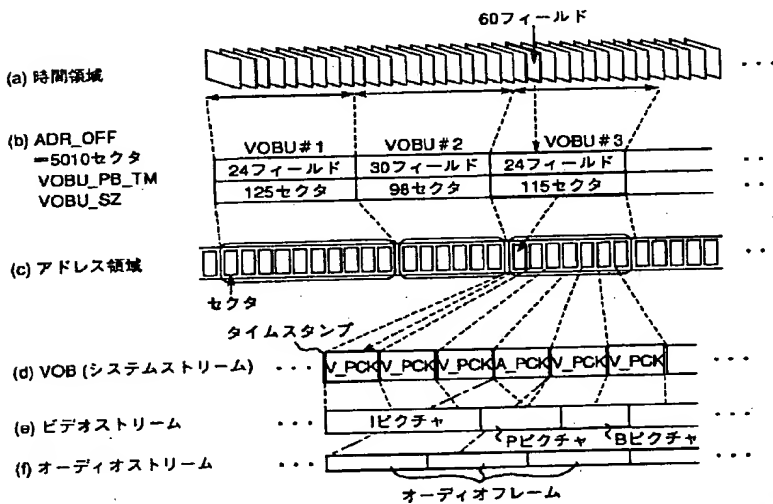 60フィールド
(a) 時間領域
(b) ADR_OFF
=5010セクタ
VOBU_PB_TM
VOBU_SZ
VOBU#1 VOBU#2 VOBU#3
24フィールド 30フィールド 24フィールド
125セクタ 98セクタ 115セクタ
(c) アドレス領域
セクタ
タイムスタンプ
(d) VOB (システムストリーム) V_PCK V_PCK V_PCK A_PCK V_PCK V_PCK
(e) ビデオストリーム Iピクチャ
Pピクチャ Bピクチャ
(f) オーディオストリーム
オーディオフレーム